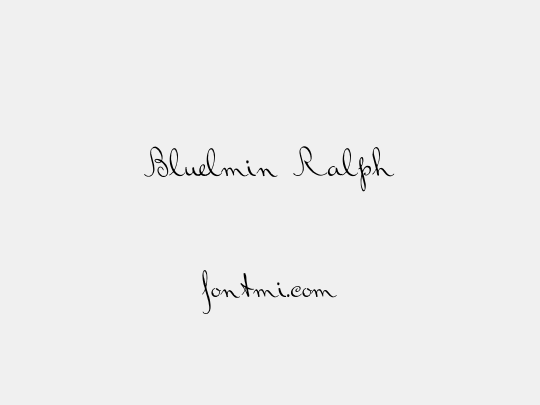 Bluelmin Ralph
fontmi.com